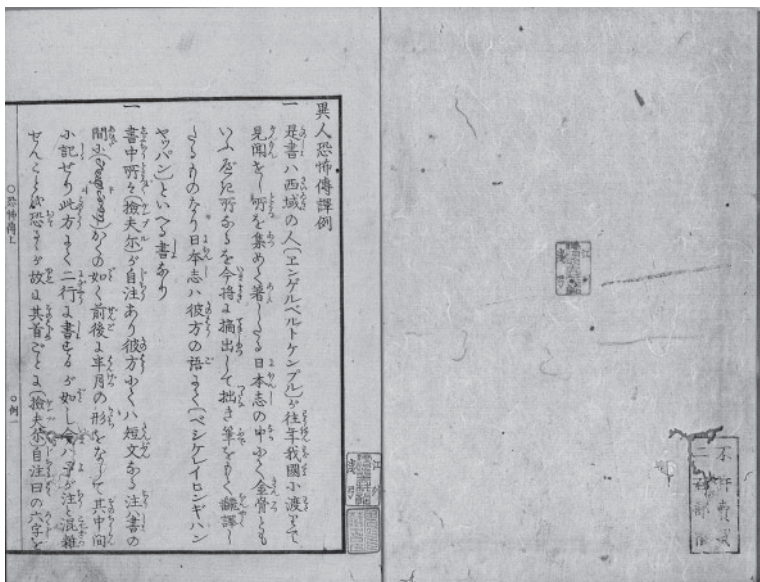 異人恐怖傳譯例
一 是書ハ西域の人(ヱンゲルベルトケンプル)が往年我國に渡りて
見聞をし所を集めて著したる日本志の中にて金骨とも
いふべき所なるを今將に摘出して拙き筆をもて翻譯し
たるものなり日本志ハ彼方の語にて(ベシケレイヒンギハン
ヤッパン)といへる書なり
一 書中所々(撿夫尓)が自注あり彼方にてハ短文なる注ハ書の
間に かくの如く前後に半月の形をなして其中間
に記せり此方にて二行に書するが如し今ハ予が注と混雜
せんことを恐るゝが故に其首ごとに(撿夫尓)自注曰の六字を
〇恐怖傳上
〇例一
不許賣買